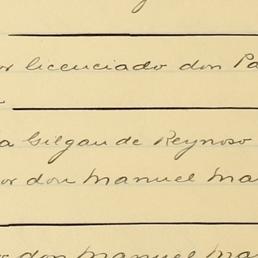 or licenciado don Pa
a Gilgau de Reynoso
or don Manuel Ma
r don Manuel Ma